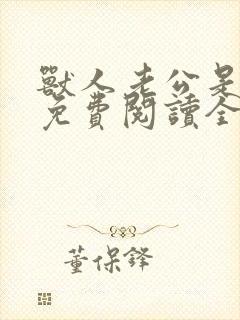 獸人老公是
免費閱讀全
董保鋒